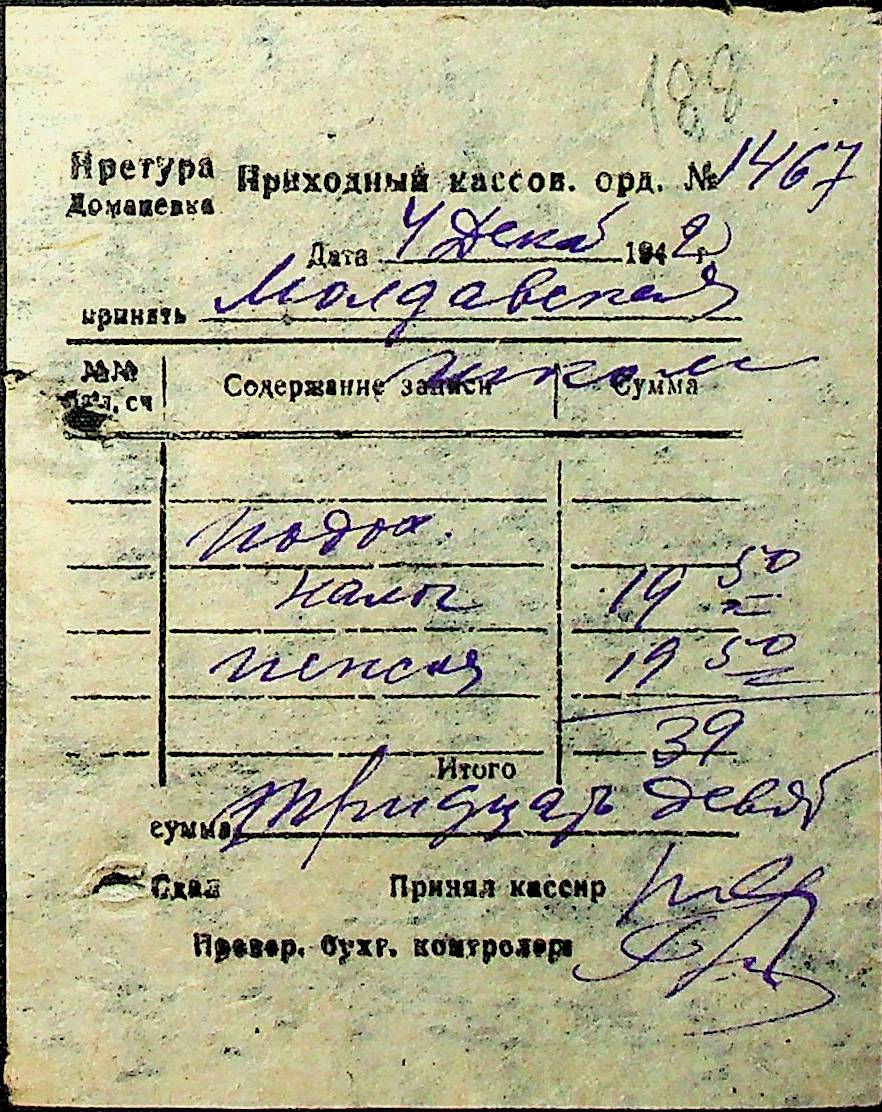 188
Претура Приходный кассов. орд. № 1467
Доманевка
Дата 4 Дека 1942 г.
принять Молдавская
школа
№№ Содержание записи Сумма
бал. сч
подох.
налог 19 50
пенсия 19 50
39
Итого
сумма Тридцать девять
Сдал Принял кассир
Провер. бухг. контролер